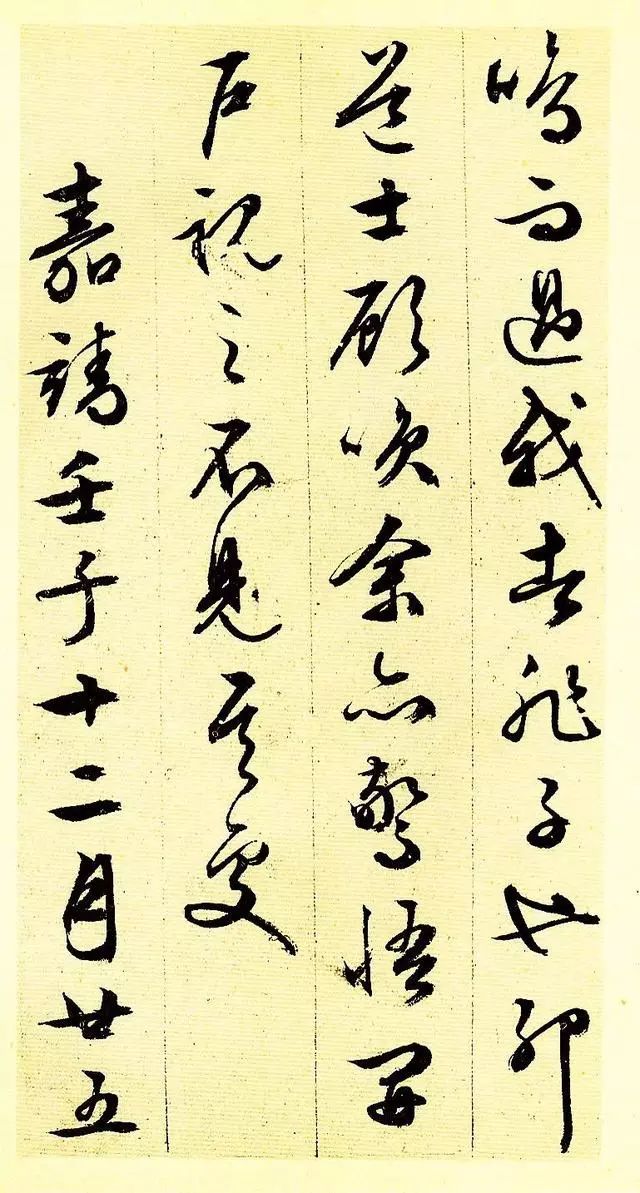 鳴而過我者非子也邪
道士顧笑余亦驚悟開
戶視之不見其處
嘉靖壬子十二月廿五